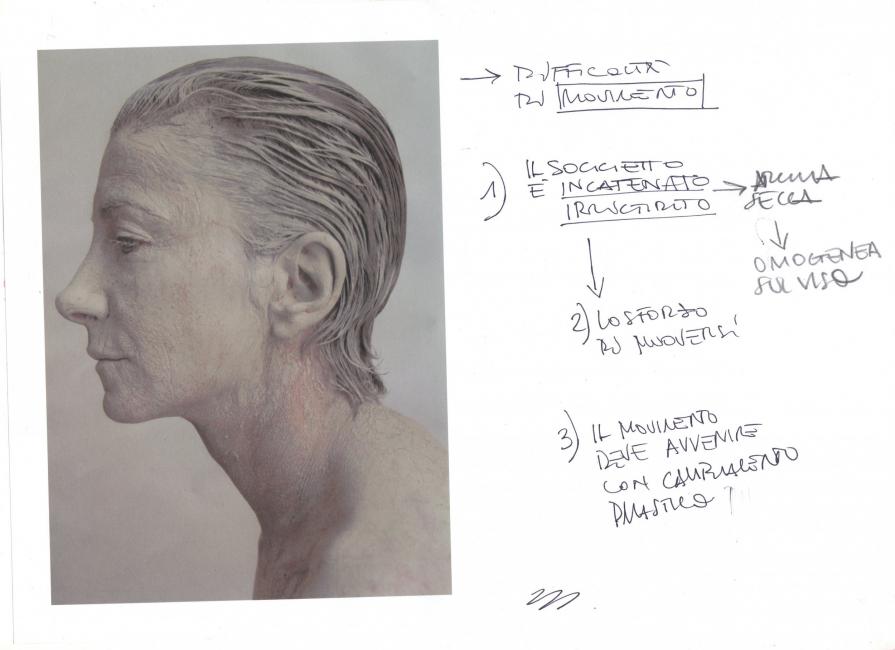 → DIFFICOLTÀ
DI MOVIMENTO
1) IL SOGGETTO
È INCATENATO →
IRRIGIDITO
ARGILLA
SECCA
OMOGENEA
SUL VISO
2) LO SFORZO
DI MUOVERSI
3) IL MOVIMENTO
DEVE AVVENIRE
CON CAMBIAMENTO